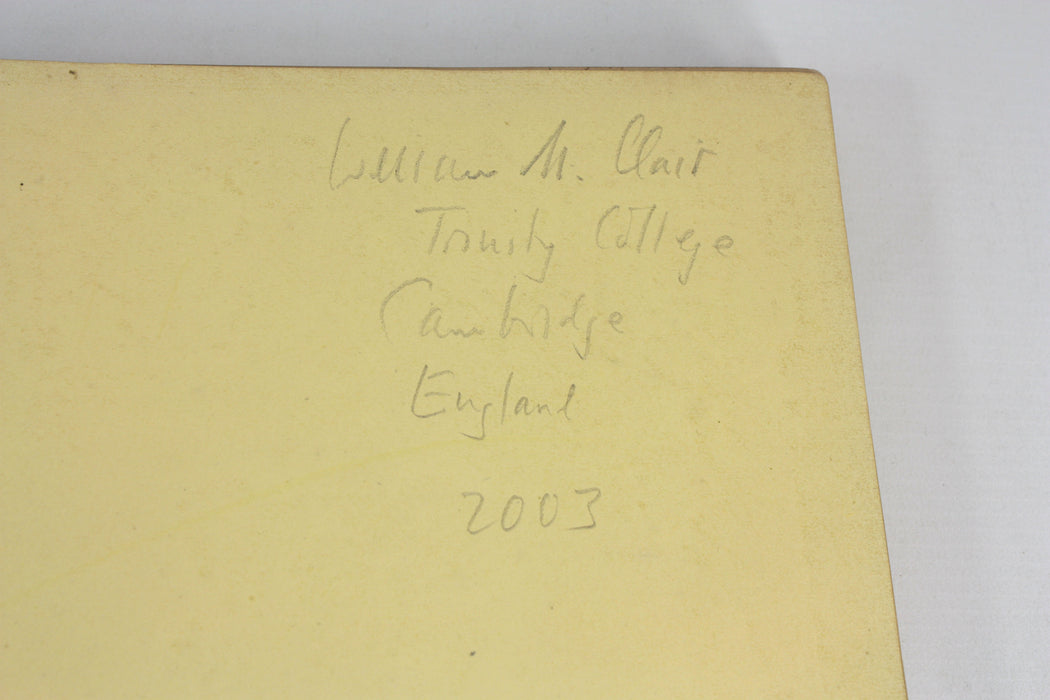 William St. Clair
Trinity College
Cambridge
England
2003